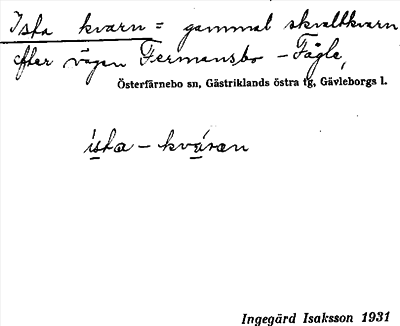 Ista kvarn = gammal skvaltkvarn
efter vägen Fermansbo – Fågle,
Österfärnebo sn, Gästriklands östra tg, Gävleborgs l.
ísta – kváran
Ingegärd Isaksson 1931